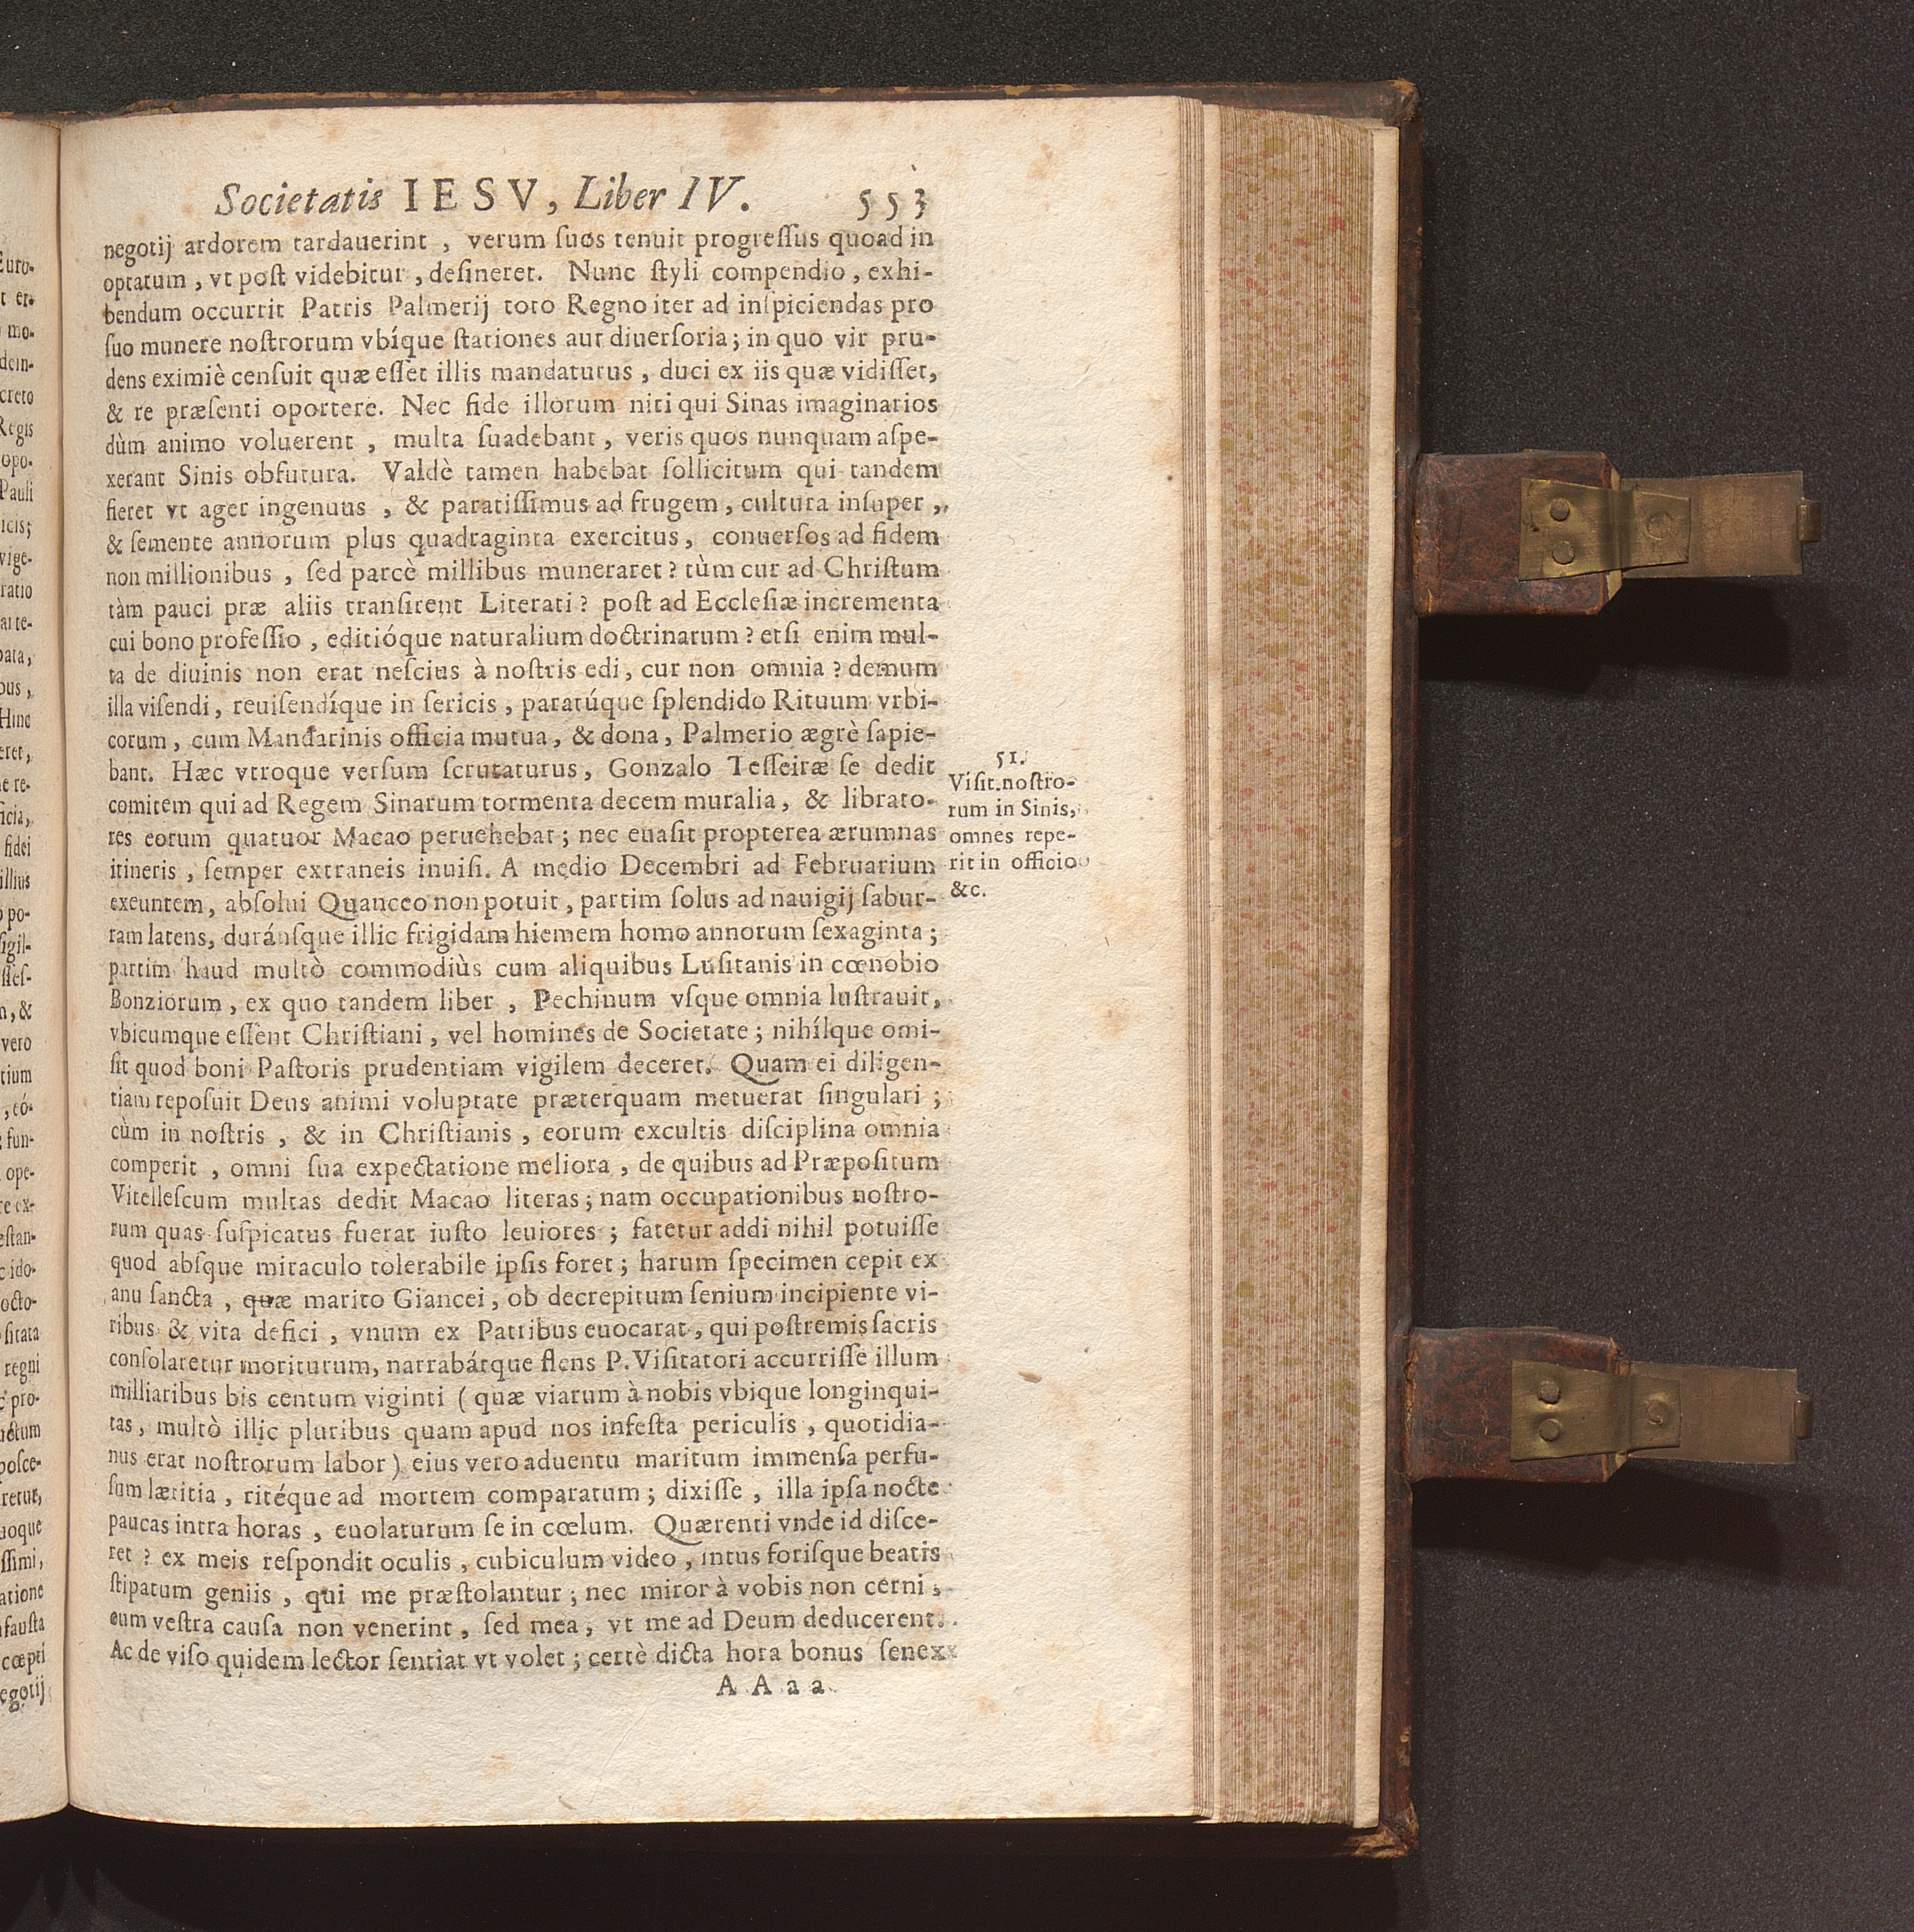 Societatis IESV, Liber IV. 553
negotij ardorem tardauerint , verum ſuos tenuit progreſſus quoad in
optatum , vt poſt videbitur , deſineret. Nunc ſtyli compendio, exhi-
bendum occurrit Patris Palmerij toto Regno iter ad inſpiciendas pro
ſuo munere noſtrorum vbíque ſtationes aut diuerſoria; in quo vir pru-
dens eximiè cenſuit quæ eſſet illis mandaturus , duci ex iis quæ vidiſſet,
& re præſenti oportere. Nec fide illorum niti qui Sinas imaginarios
dùm animo voluerent , multa ſuadebant, veris quos nunquam aſpe-
xerant Sinis obfutura. Valdè tamen habebat ſollicitum qui tandem
fieret vt ager ingenuus , & paratiſſimus ad frugem, cultura inſuper ,
& ſemente annorum plus quadraginta exercitus, conuerſos ad fidem
non millionibus , ſed parcè millibus muneraret ? tùm cur ad Chriſtum
tàm pauci præ aliis tranſirent Literati ? poſt ad Eccleſiæ incrementa
cui bono profeſſio , editióque naturalium doctrinarum ? etſi enim mul-
ta de diuinis non erat neſcius à noſtris edi, cur non omnia ? demum
illa viſendi, reuiſendíque in ſericis , paratúque ſplendido Rituum vrbi-
corum, cum Mandarinis officia mutua, & dona, Palmerio ægrè ſapie-
bant. Hæc vtroque verſum ſcrutaturus, Gonzalo Teſſeiræ ſe dedit
comitem qui ad Regem Sinarum tormenta decem muralia, & librato-
res eorum quatuor Macao peruehebat; nec euaſit propterea ærumnas
itineris , ſemper extraneis inuiſi. A medio Decembri ad Februarium
exeuntem, abſolui Quanceo non potuit, partim ſolus ad nauigij ſabur-
ram latens, duránſque illic frigidam hiemem homo annorum ſexaginta ;
partim haud multò commodiùs cum aliquibus Luſitanis in cœnobio
Bonziorum, ex quo tandem liber , Pechinum vſque omnia luſtrauit,
vbicumque eſſent Chriſtiani, vel homines de Societate; nihílque omi-
ſit quod boni Paſtoris prudentiam vigilem deceret. Quam ei diligen-
tiam repoſuit Deus animi voluptate præterquam metuerat ſingulari ;
cùm in noſtris , & in Chriſtianis , eorum excultis diſciplina omnia
comperit , omni ſua expectatione meliora , de quibus ad Præpoſitum
Vitelleſcum multas dedit Macao literas; nam occupationibus noſtro-
rum quas ſuſpicatus fuerat iuſto leuiores ; fatetur addi nihil potuiſſe
quod abſque miraculo tolerabile ipſis foret; harum ſpecimen cepit ex
anu ſancta , quæ marito Giancei, ob decrepitum ſenium incipiente vi-
ribus & vita defici , vnum ex Patribus euocarat, qui poſtremis ſacris
conſolaretur moriturum, narrabátque flens P. Viſitatori accurriſſe illum
milliaribus bis centum viginti ( quæ viarum à nobis vbique longinqui-
tas , multò illic pluribus quam apud nos infeſta periculis , quotidia-
nus erat noſtrorum labor) eius vero aduentu maritum immenſa perfu-
ſum lætitia , ritéque ad mortem comparatum; dixiſſe , illa ipſa nocte
paucas intra horas , euolaturum ſe in cœlum. Quærenti vnde id diſce-
ret ? ex meis reſpondit oculis , cubiculum video , intus foriſque beatis
ſtipatum geniis , qui me præſtolantur ; nec miror à vobis non cerni ,
cum veſtra cauſa non venerint , ſed mea, vt me ad Deum deducerent.
Ac de viſo quidem lector ſentiat vt volet ; certè dicta hora bonus ſenex
A A a a
51.
Viſit. noſtro-
rum in Sinis,
omnes repe-
rit in officio
&c.